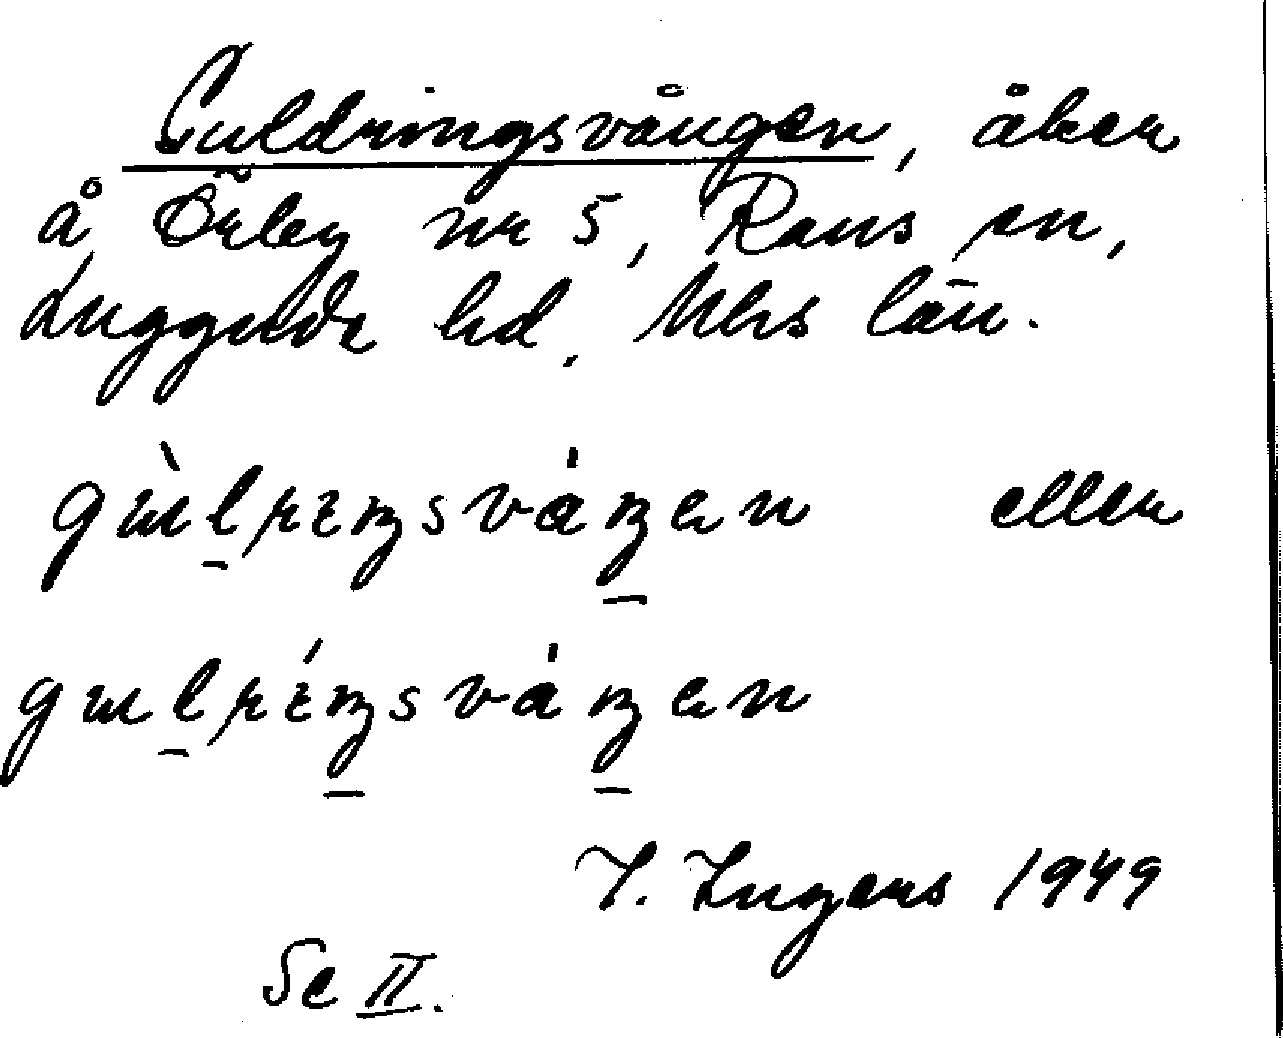 Guldringsvången, åker
å Örby nr 5, Raus sn,
Luggude hd, Mhs län.
gùlrɪŋsvåŋen eller
gulrɪ́ŋsvåŋen
I. Ingers 1949
Se II.